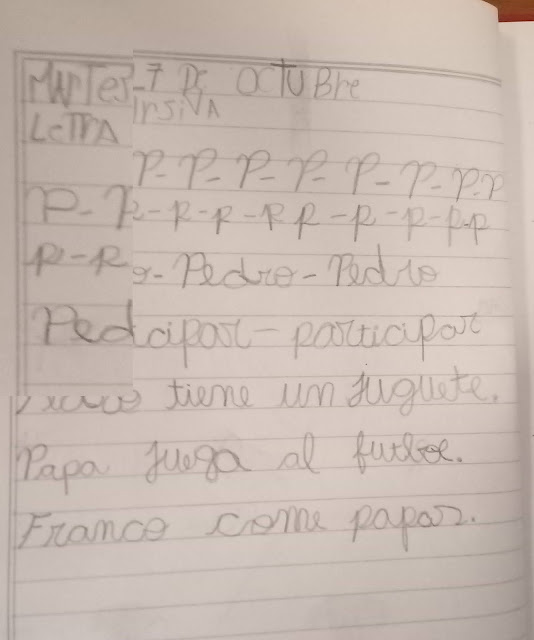 MArTes-7 De OCTUBre
LeTrA
P-P-P-P-P-P-P.P
P-P-p-p-p p-p-p-p-p
p-p -Pedro-Pedro
Ped cipar-participar
tiene un juguete.
Papa juega al
Franco come papas.